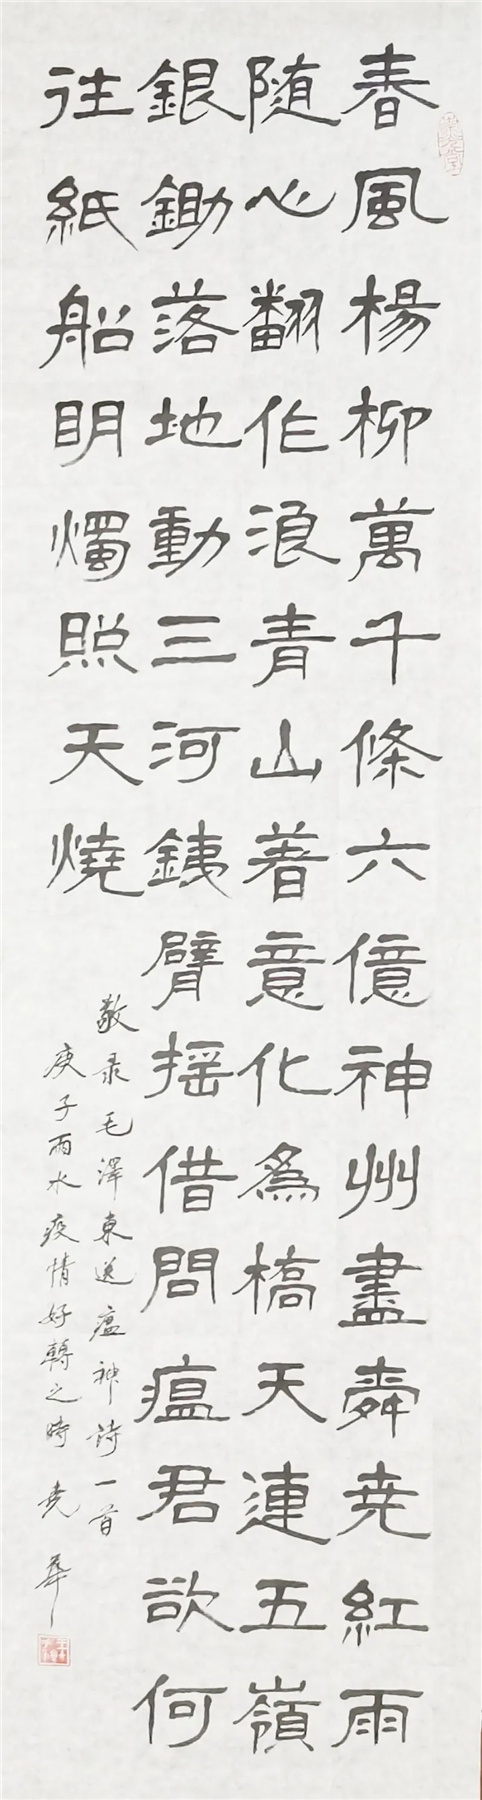 春風楊柳萬千條六億神州盡舜尭紅雨
随心翻作浪青山著意化為橋天連五嶺
銀鋤落地動三河銕臂摇借問瘟君欲何
往紙船明燭照天燒
敬录毛澤東送瘟神詩一首
庚子雨水疫情好轉之時 尭華